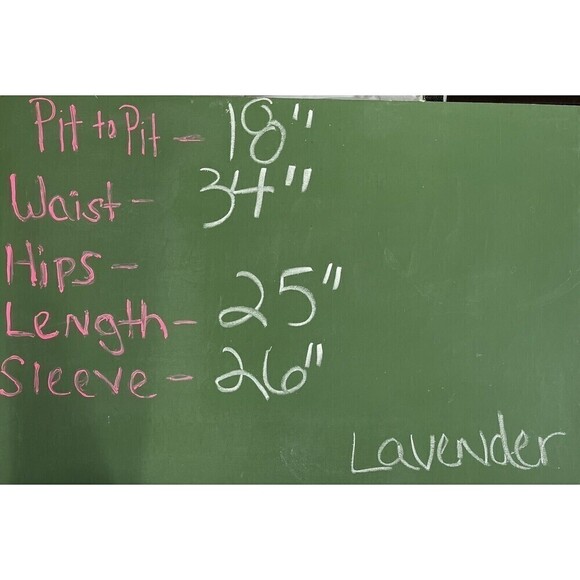 Pit to Pit - 18"
Waist - 34"
Hips -
Length - 25"
Sleeve - 26"
Lavender